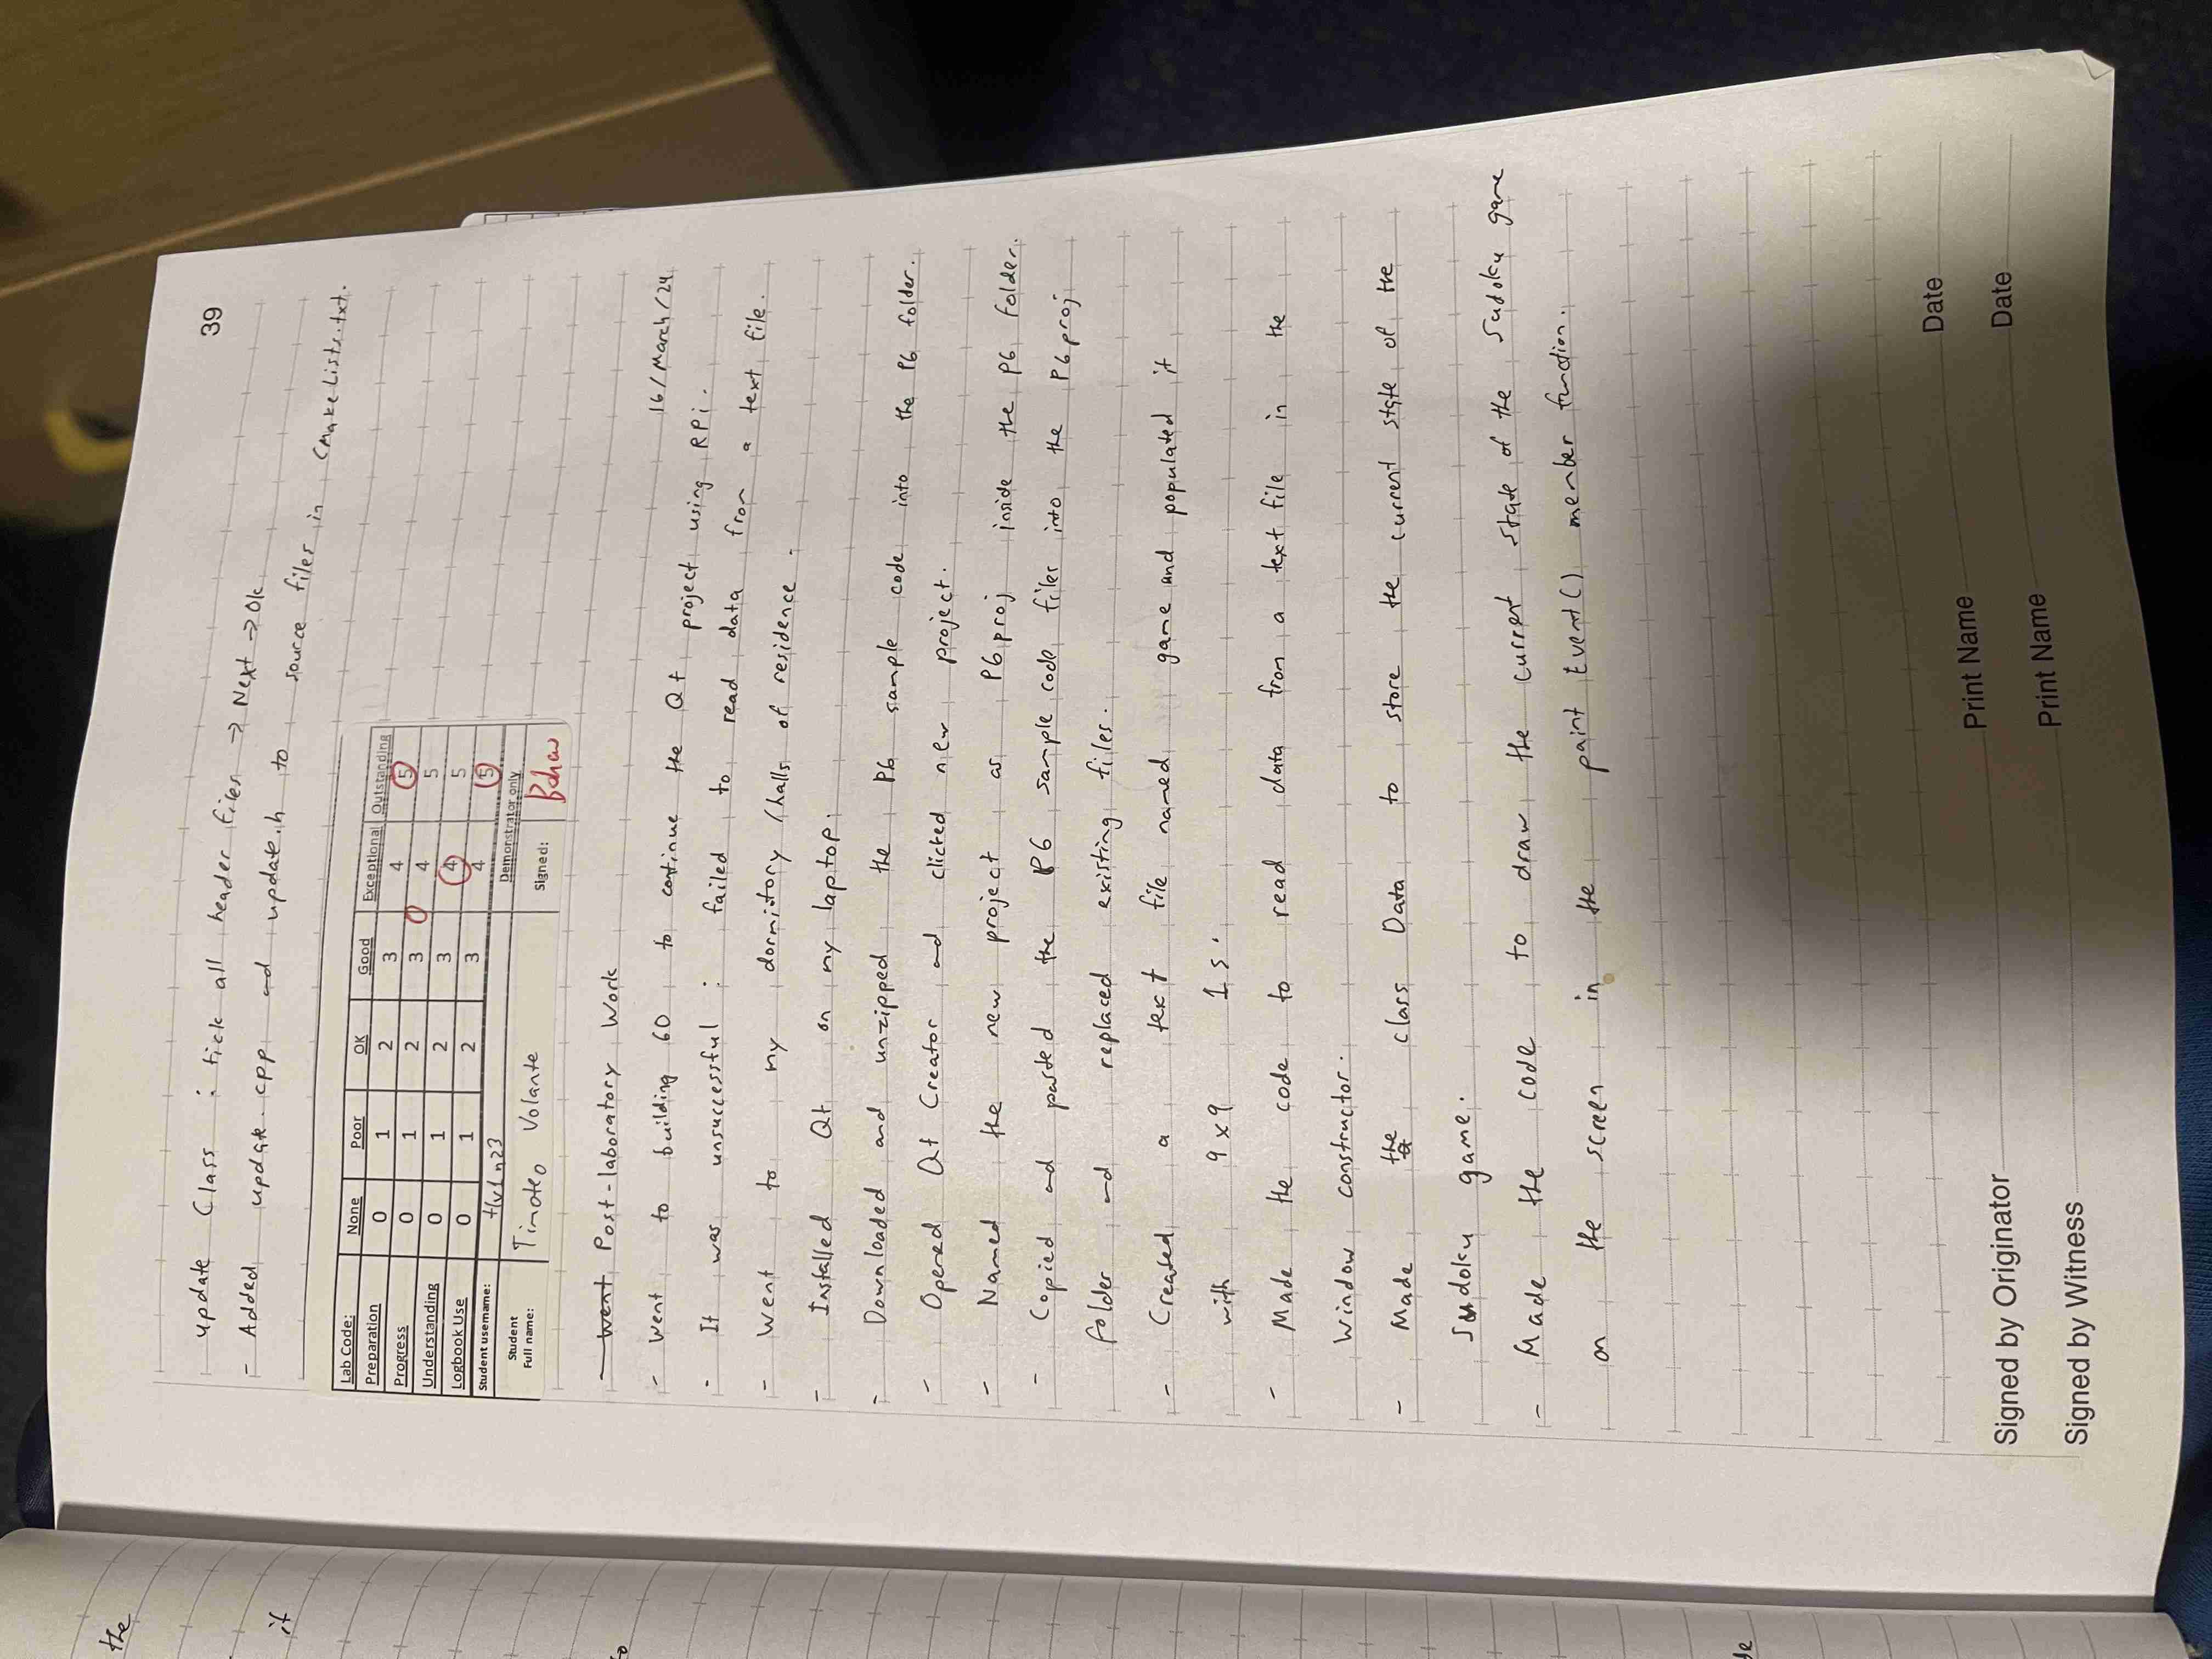 the
if
to
39
update Class : tick all header files → Next → Ok
- Added update.cpp and update.h to source files in CMakeLists.txt.
Lab Code: None Poor OK Good Exceptional Outstanding
Preparation 0 1 2 3 4 5
Progress 0 1 2 3 4 5
Understanding 0 1 2 3 4 5
Logbook Use 0 1 2 3 4 5
Student username: tlv1n23 Demonstrator only
Student Full name: Timoteo Volante Signed:
- Went Post-laboratory Work
16/March/24
- Went to building 60 to continue the Qt project using RPi.
- It was unsuccessful : failed to read data from a text file.
- Went to my dormitory /halls of residence.
- Installed Qt on my laptop.
- Downloaded and unzipped the P6 sample code into the P6 folder.
- Opened Qt Creator and clicked new project.
- Named the new project as P6proj inside the P6 folder.
- Copied and pasted the P6 sample code files into the P6proj
folder and replaced existing files.
- Created a text file named game and populated it
with 9x9 1s.
- Made the code to read data from a text file in the
Window constructor.
- Made the a class Data to store the current state of the
Sudoku game.
- Made the code to draw the current state of the Sudoku game
on the screen in the paintEvent() member function.
Signed by Originator Print Name Date
Signed by Witness Print Name Date